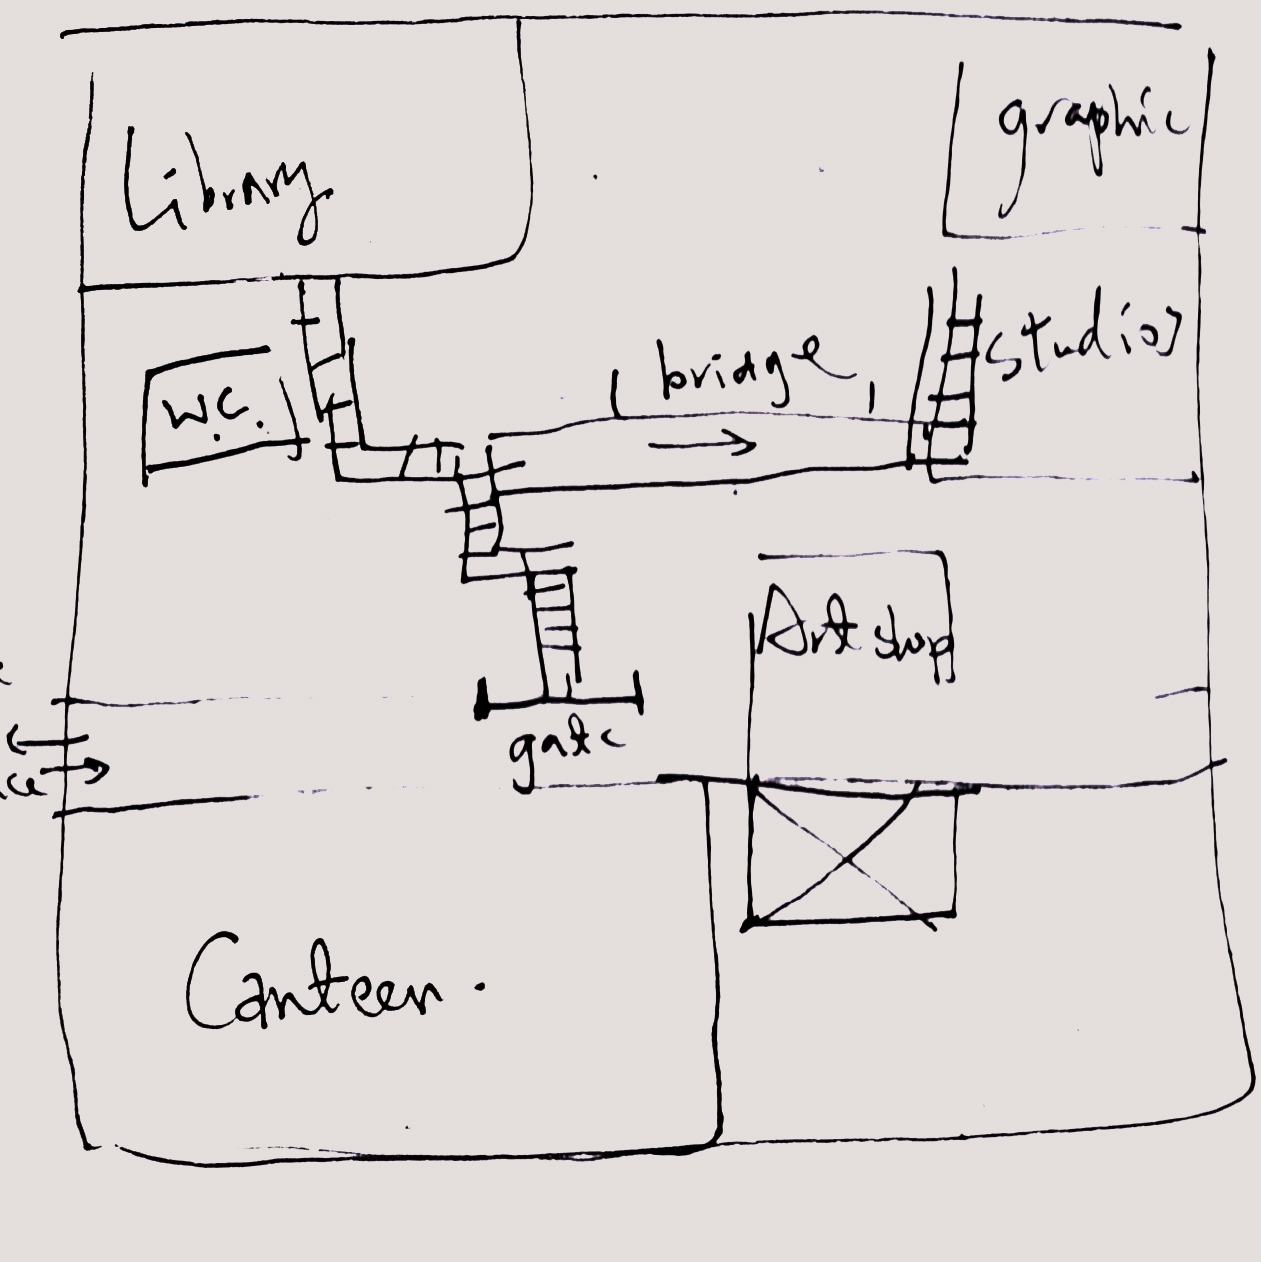 Library
graphic
W.C.
bridge
studios
Art shop
gate
Canteen.